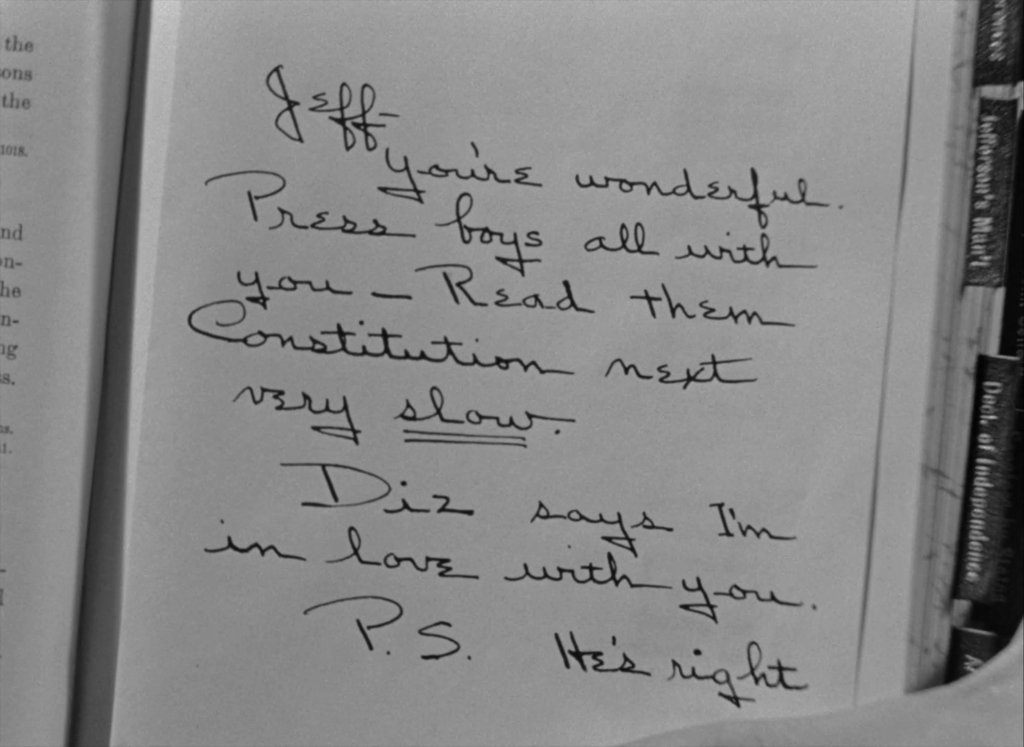 the
ons
the
1018.
nd
on-
he
n-
ng
ss.
Jeff-
you're wonderful.
Press boys all with
you — Read them
Constitution next
very slow.
Diz says I'm
in love with you.
P.S. He's right
Jefferson's Man'l
Deck of Independence